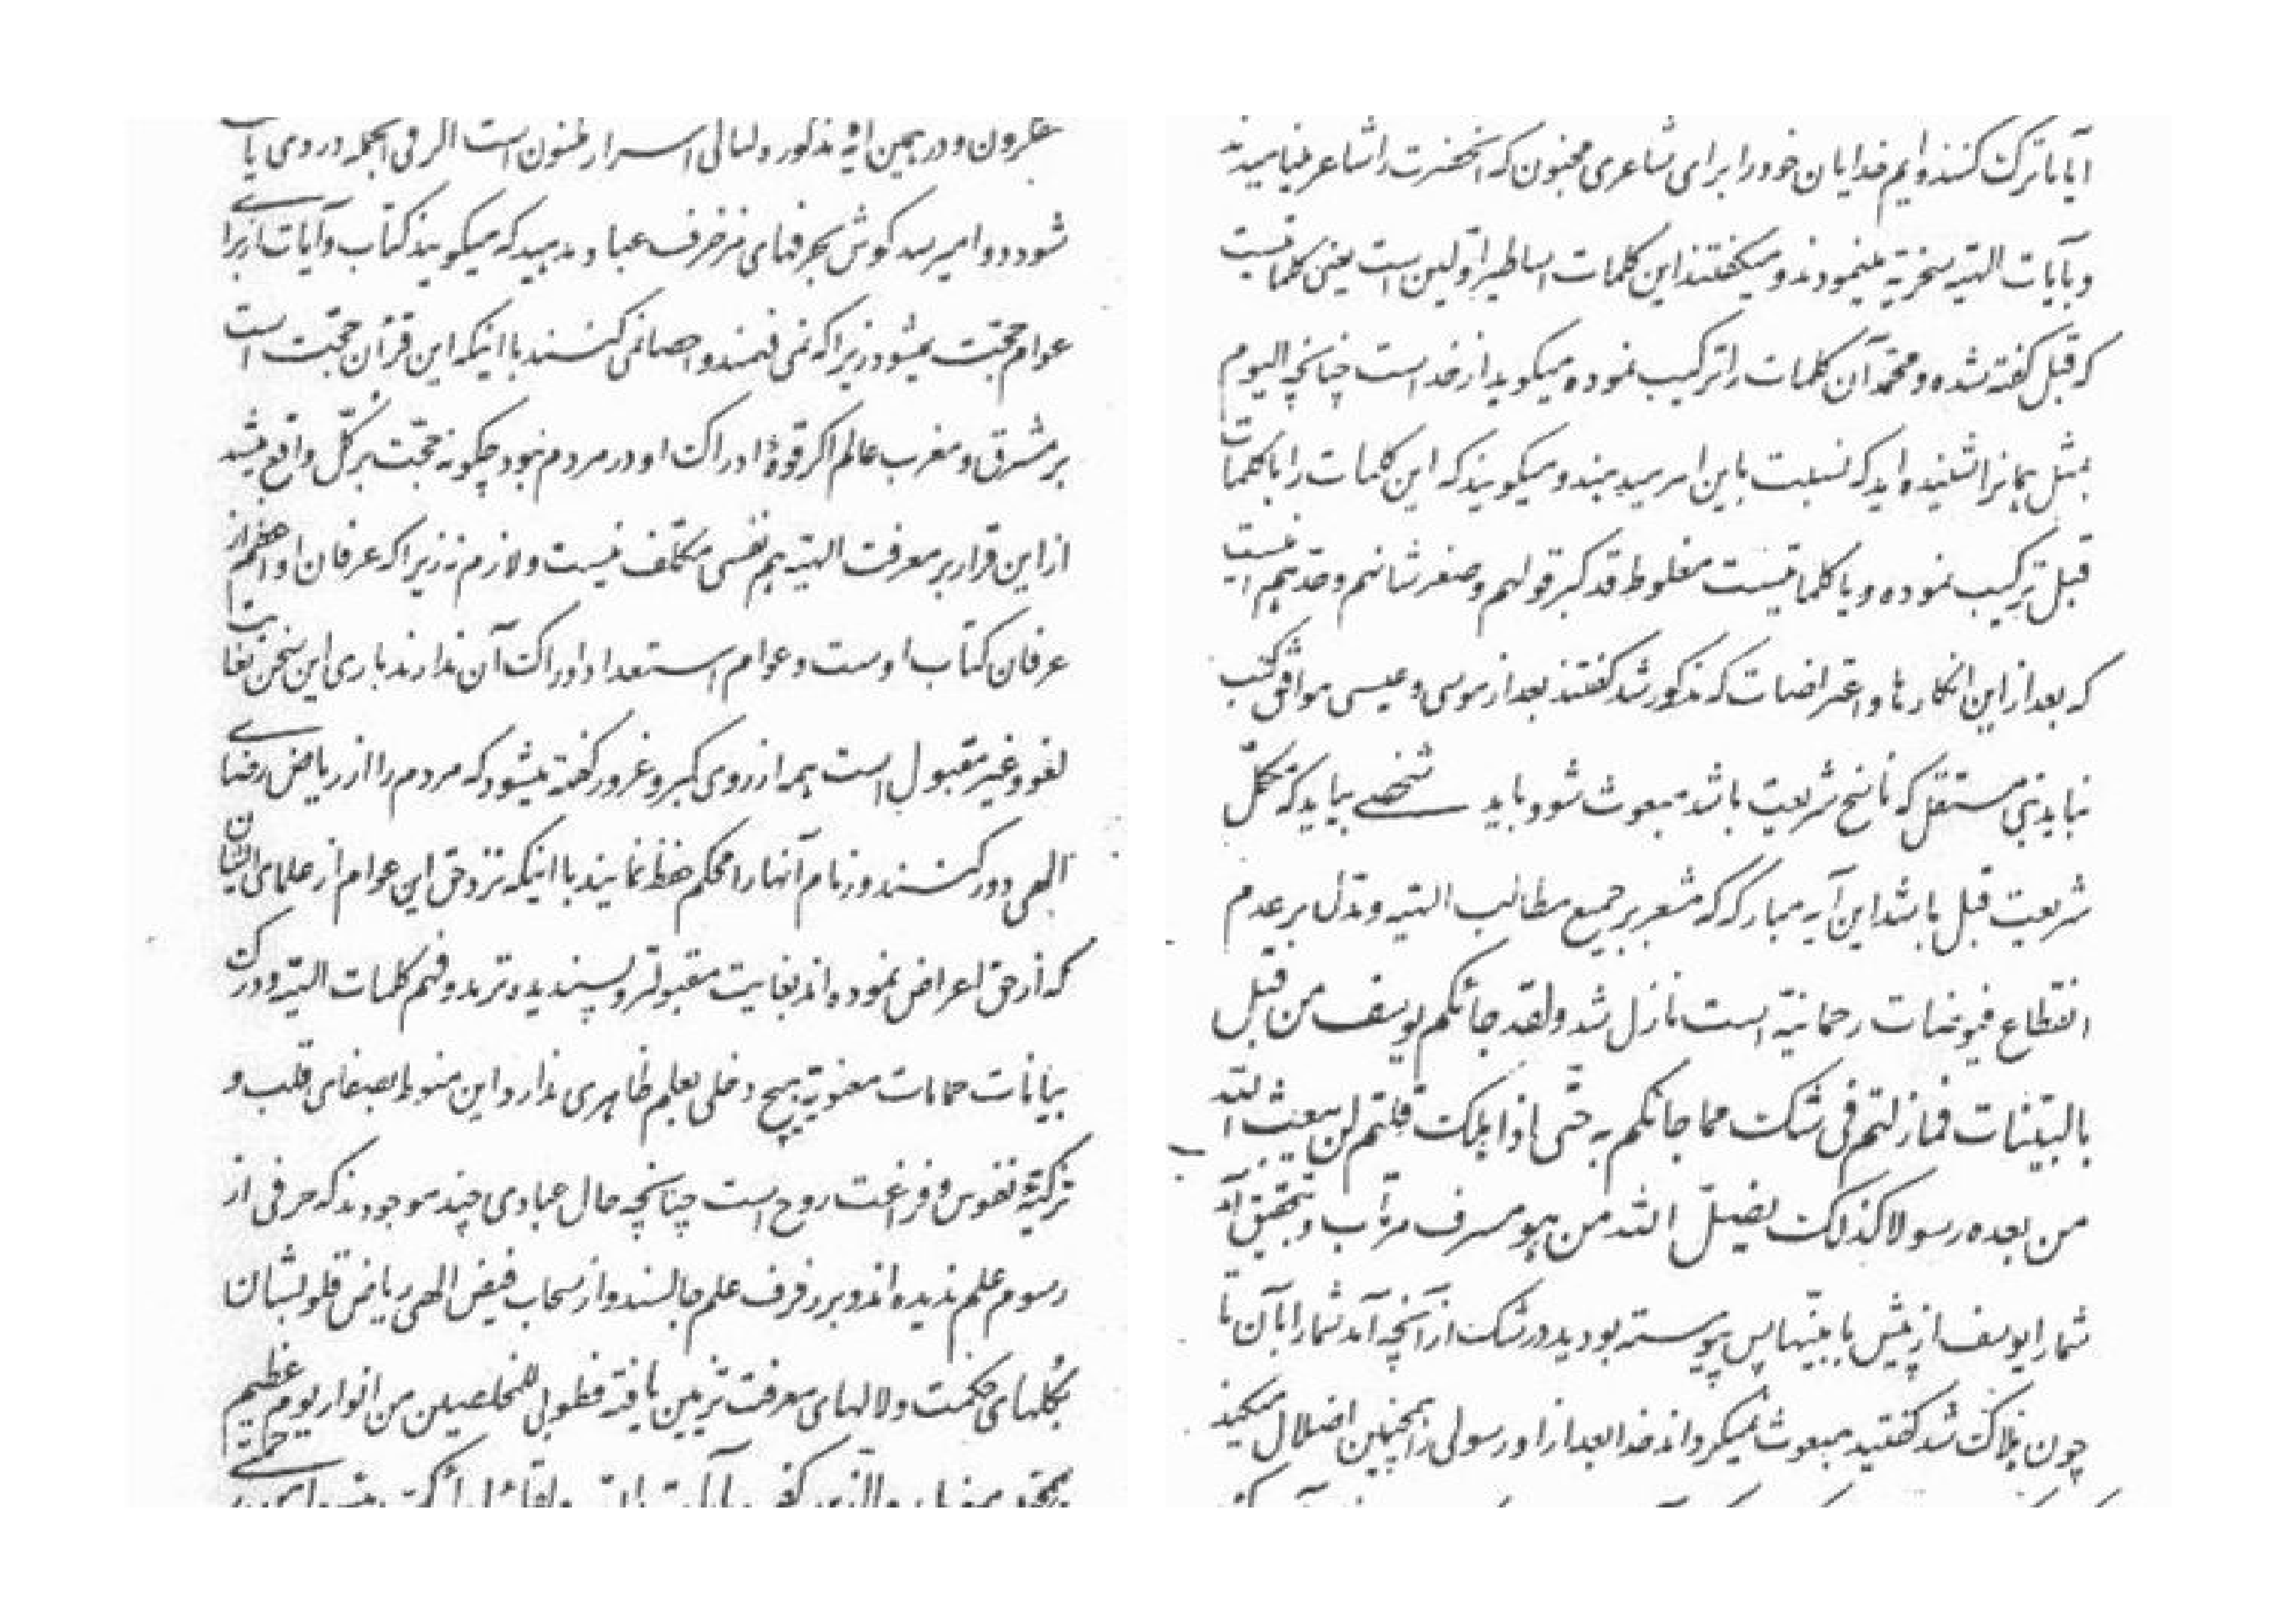 آیا ما ترک کننده‌ایم خدایان خود را برای شاعری مجنون که آنحضرت را شاعر مینامیدند
و بآیات الهیه سخریه مینمودند و میگفتند این کلمات اساطیر اولین است یعنی کلماتیست
که قبل گفته شده و محمد آن کلمات را ترکیب نموده میگوید از خداست چنانچه الیوم
بمثل همانرا شنیده‌اید که نسبت باین امر میدهند و میگویند که این کلمات را با کلمات
قبل ترکیب نموده و یا کلماتیست مغلوط قد کبر قولهم و صغر شانهم و حدهم اینست
که بعد از این انکارها و اعتراضات که مذکور شد گفتند بعد از موسی و عیسی موافق کتب
نباید نبی مستقل که ناسخ شریعت باشد مبعوث شود باید شخصی بیاید که مکمّل
شریعت قبل باشد این آیه مبارکه که مشعر بر جمیع مطالب الهیه و مدل بر عدم
انقطاع فیوضات رحمانیه است نازل شد و لقد جائکم یوسف من قبل
بالبینات فمازلتم فی شک مما جائکم به حتّی اذا هلک قلتم لن یبعث الله
من بعده رسولا کذلک یضلّ الله من هو مسرف مرتاب و بتحقیق آمد
شما را یوسف از پیش با بیّنها پس پیوسته بودید در شک از آنچه آمد شما را بآن تا
چون هلاک شد گفتید مبعوث نمیگرداند خدا بعد از او رسولی را همچنین اضلال میکند
و در همین آیه مذکور و لئالی اسرار مکنون است اگر فی الجمله دردی یافت
شود دوا میرسد گوش بحرفهای مزخرف عباد مدهید که میگویند کتاب و آیات از برای
عوام حجّت نمیشود زیرا که نمی فهمند و احصا نمی کنند با اینکه این قرآن حجّت است
بر مشرق و مغرب عالم اگر قوّهٔ ادراک او در مردم نبود چگونه حجّت بر کلّ واقع میشد
از این قرار بر معرفت الهیّه هم نفسی مکلّف نیست و لازم نه زیرا که عرفان او اعظم از
عرفان کتاب اوست و عوام استعداد ادراک آن ندارند باری این سخن بغایت
لغو و غیر مقبول است همه از روی کبر و غرور گفته میشود که مردم را از ریاض رضای
الهی دور کنند و زمام آنها را محکم حفظ نمایند با اینکه نزد حق این عوام از علمای ایشان
که از حق اعراض نموده‌اند بغایت مقبولتر و پسندیده‌ترند و فهم کلمات الهیّه و درک
بیانات حمامات معنویّه هیچ دخلی بعلم ظاهری ندارد این منوط بصفای قلب و
تزکیهٔ نفوس و فراغت روح است چنانچه حال عبادی چند موجودند که حرفی از
رسوم علم ندیده‌اند و بر رفرف علم جالسند و از سحاب فیض الهی ریاض قلوبشان
بگلهای حکمت و لالهای معرفت تزیین یافته فطوبی للمخلصین من انوار یوم عظیم